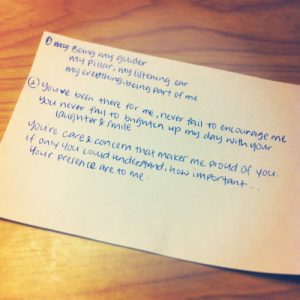 ① Being my guider
my pillar, my listening ear
my everything, being part of me.
② You've been there for me, never fail to encourage me
You never fail to brighten up my day with your
laughter & smile
You're care & concern that makes me proud of you.
if only you could understand, how important...
your presence are to me.